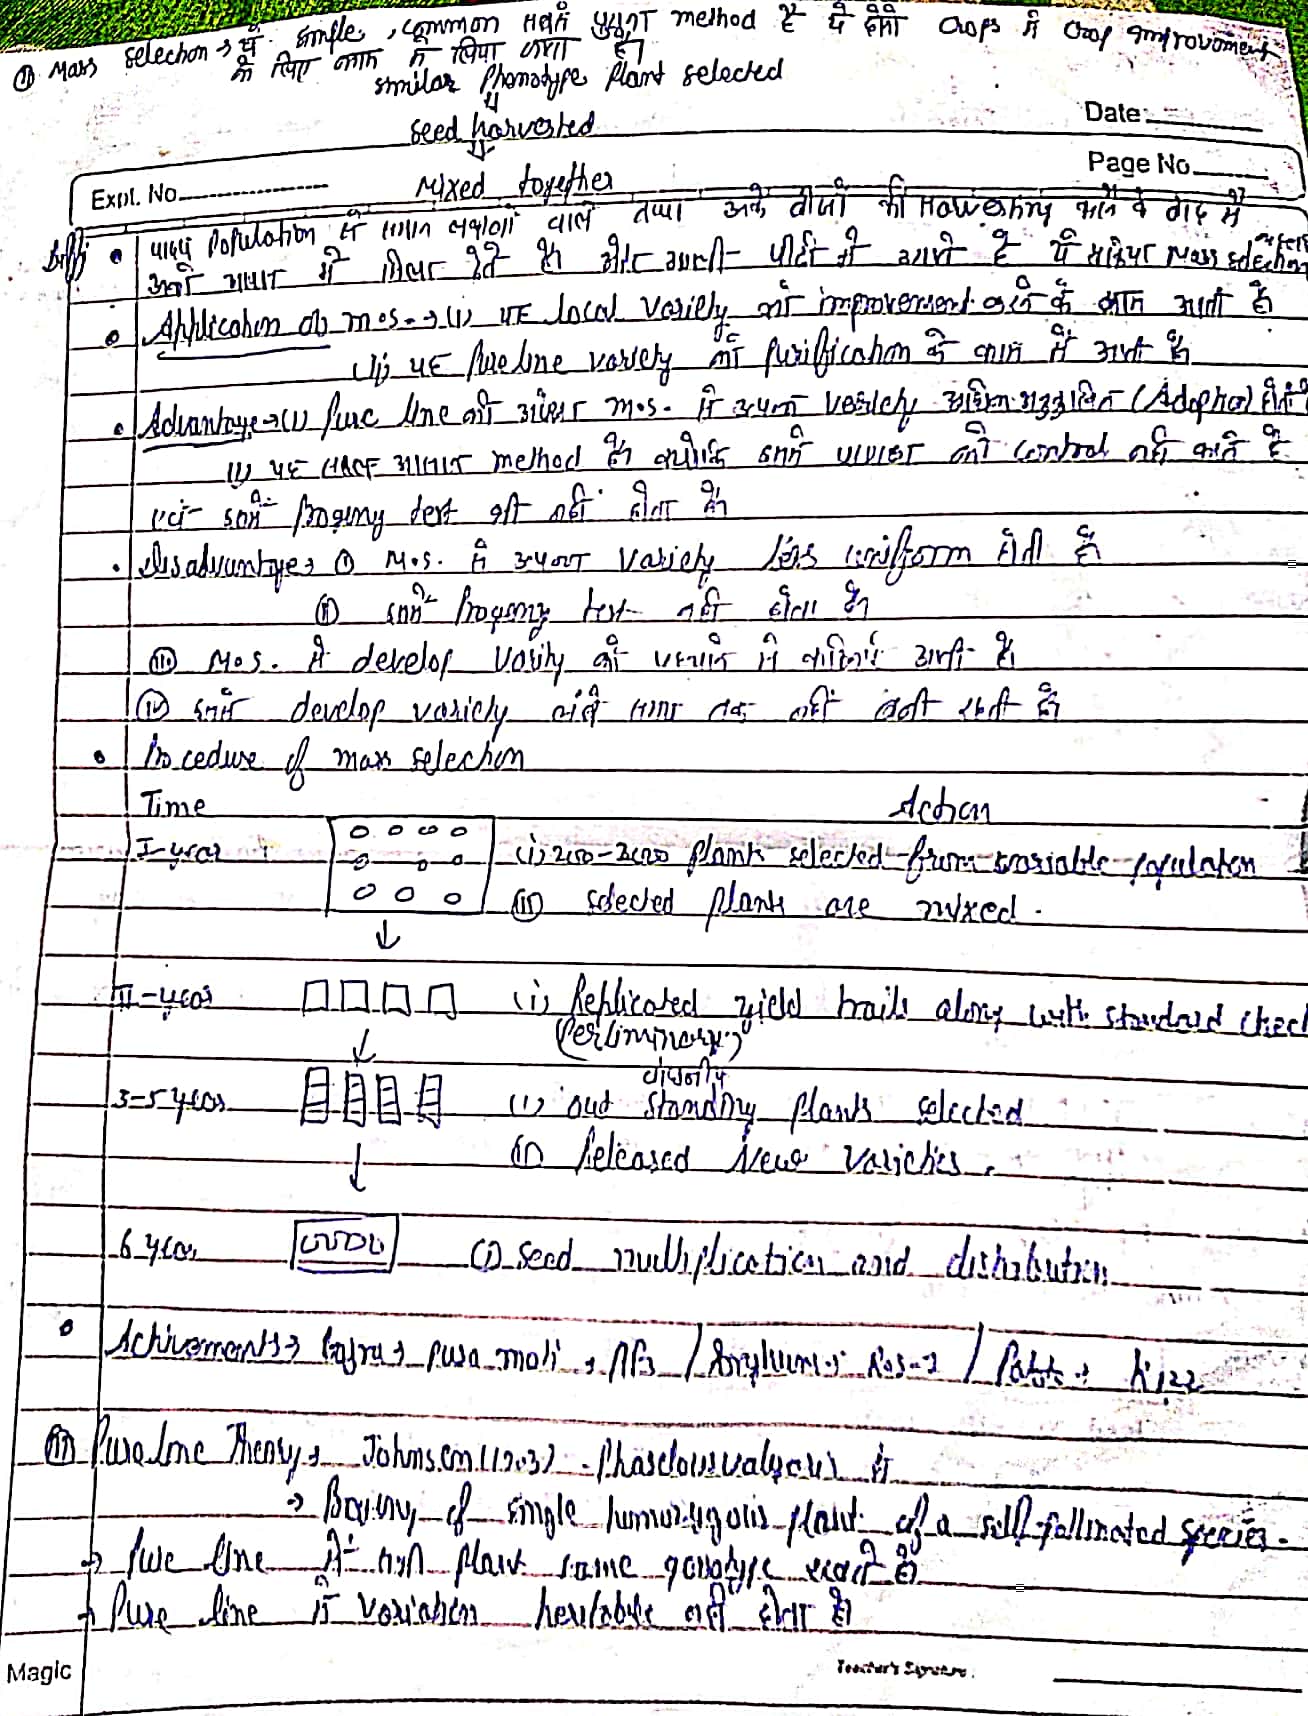 (ii) Mass selection → ये simple, common सबसे पुराना method है ये दोनों crops में crop improvement
के लिए काम में लिया जाता है।
similar phenotype plant selected
↓
seed harvested
↓
Mixed together
Date:
Page No.
Expl. No.
• पादप population से समान लक्षणों वाले तथा उनके बीजों की Harvesting करने के बाद में
आपस में मिला देते हैं और अगली पीढ़ी में उगाते है ये प्रक्रिया Mass selection
• Application of m.s. → (i) यह local variety को improvement करने के काम आती है
(ii) यह pureline variety को purification के काम में आती है।
• Advantage → (i) Pure line की अपेक्षा m.s. से उत्पन्न variety अधिक अनुकूलित (Adopted) होती
(ii) यह सरल आसान method है। क्योंकि इसमें परागण को control नहीं करते है
एवं इसमें Progeny test भी नहीं होता है।
• Disadvantage → (i) M.S. से उत्पन्न variety less uniform होती है
(ii) इसमें Progeny test नहीं होता है।
(iii) M.S. से develop varity को पहचानने में आती है।
(iv) इसमें develop variety लंबे समय तक नहीं बनी रहती है।
• Procedure of mass selection
Time Action
I-year (i) 200-2000 plants selected from variable population
(ii) selected plants are mixed.
↓
II-year (i) Replicated yield trails along with standard check
(Perliminary)
↓
3-5 year (i) out standing plants selected
वांछनीय
(ii) Released New varieties.
↓
6 year (i) seed multiplication and distribution
• Achivements → Bajra → pusa moti, / → RS-1 / Potato → K122
(iii) Pure line Theory → Johnson (1903) - Phaseolous valgaris में
→ Progeny of single homozygous plant of a self pollinated species.
→ Pure line में सभी plant same genotype रखते है।
→ Pure line में variation heritable नहीं होता है।
Magic
Teacher's Signature.